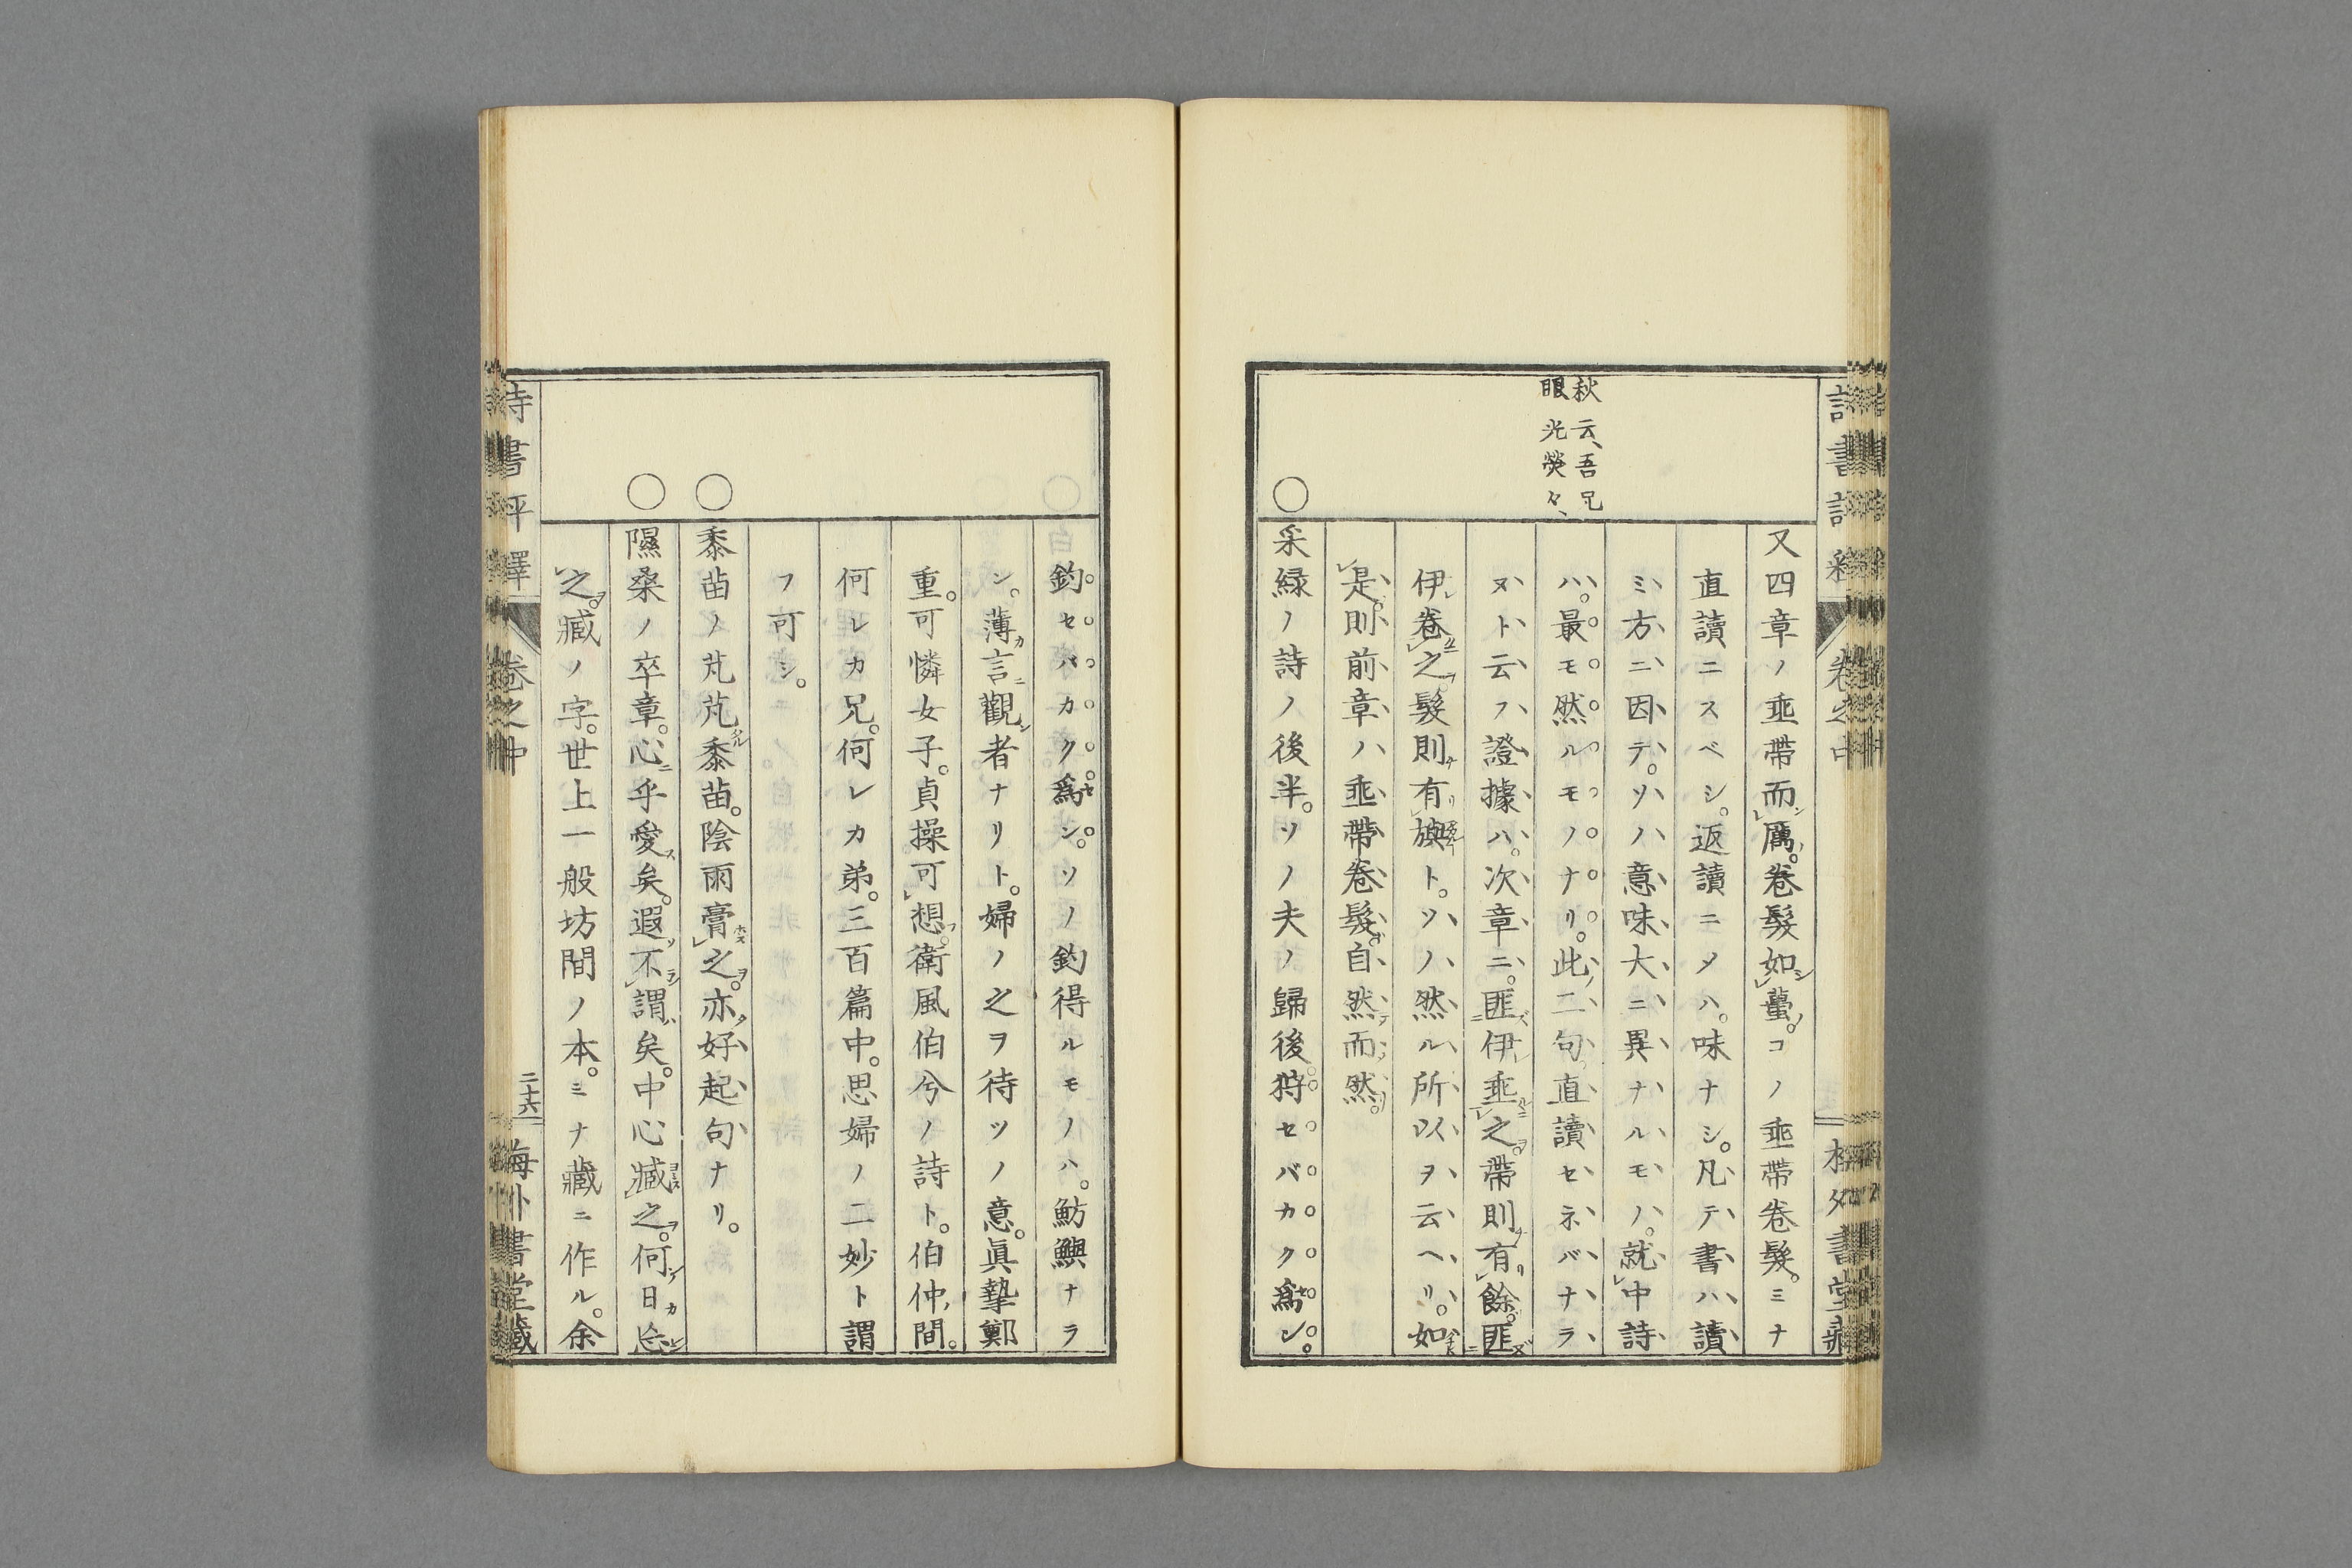 秋云、吾兄
眼光熒々、
又四章ノ垂帶而厲。卷髮如蠆。コノ垂帶卷髮。ミナ
直讀ニスベシ。返讀ニメハ。味ナシ。凡テ書ハ讀
ミ方ニ因テ。ソノ意味大ニ異ナルモノ。就中詩
ハ。最モ然ルモノナリ。此二句直讀セネバナラ
ヌト云フ證據ハ。次章ニ。匪伊垂之。帶則有餘。匪
伊卷之。髮則有旟ト。ソノ然ル所以ヲ云ヘリ。如
是則前章ハ垂帶卷髮。自然而然。
○采緑ノ詩ノ後半。ソノ夫ノ歸後。狩セバカク爲ン。
釣セバカク爲ン。ソノ釣得ルモノハ。魴鱮ナラ
ン。薄言觀者ナリト。婦ノ之ヲ待ツノ意。眞摯鄭
重。可憐女子。貞操可想。衞風伯兮ノ詩ト。伯仲間。
何レカ兄。何レカ弟。三百篇中。思婦ノ二妙ト謂
フ可シ。
○黍苗ノ芃芃黍苗。陰雨膏之。亦好起句ナリ。
○隰桑ノ卒章。心乎愛矣。遐不謂矣。中心臧之。何日忘
之。臧ノ字。世上一般坊間ノ本。ミナ藏ニ作ル。余
詩書評釋
卷之中
二十六
海外書堂藏